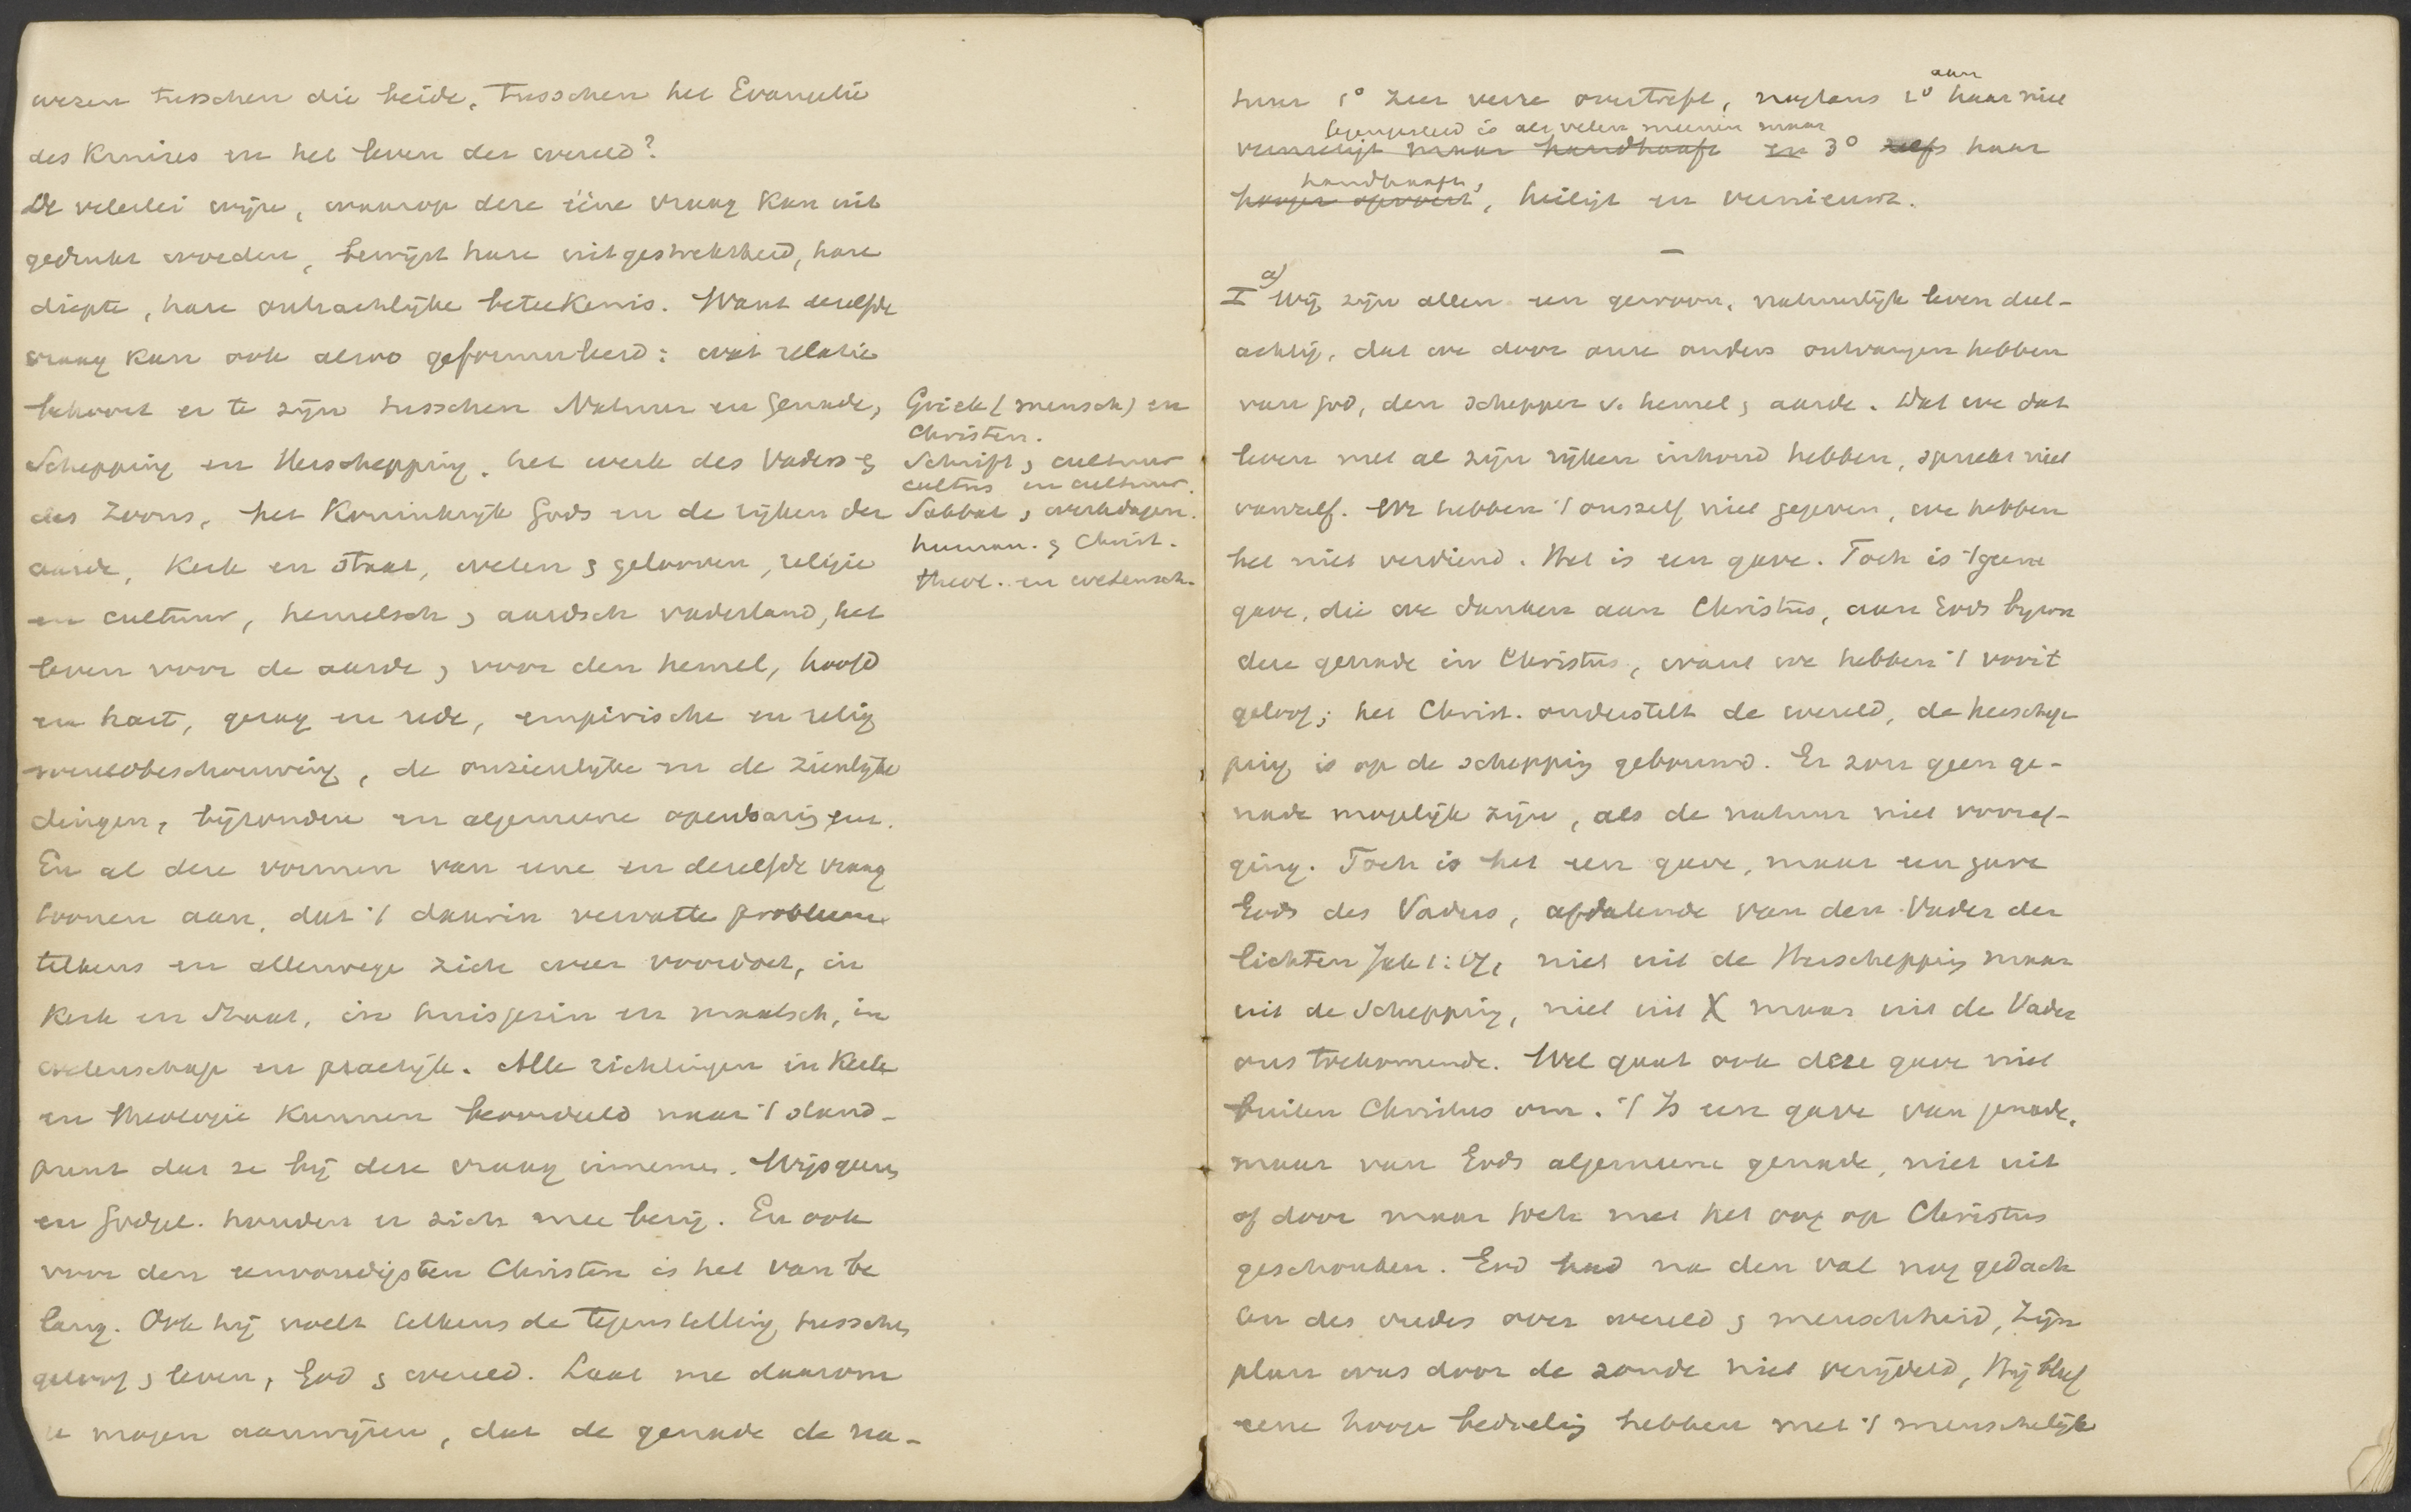 wezen tusschen die beide, tusschen het Evangelie
des Kruises en het leven der wereld?
De velerlei wijze, waarop deze ééne vraag kan uit
gedrukt worden, bewijst hare uitgestrektheid, hare
diepte, hare ontzachlijke beteekenis. Want dezelfde
vraag kan ook alzoo geformuleerd: wat relatie
behoort er te zijn tusschen Natuur en Genade,
Schepping en Herschepping, het werk des Vaders &
des Zoons, het Koninkrijk Gods en de rijken der
aarde, Kerk en Staat, weten & gelooven, religie
en cultuur, hemelsch & aardsch vaderland, het
leven voor de aarde & voor den hemel, hoofd
en hart, gezag en rede, empirische en relig
wereldbeschouwing, de onzienlijke en de zienlijke
dingen, bijzondere en algemeene openbaring enz.
En al deze vormen van eene en dezelfde vraag
toonen aan, dat 't daarin vervatte probleem
telkens en allerwege zich weer voordoet, in
Kerk en Staat, in huisgezin en maatsch, in
wetenschap en practijk. Alle richtingen in Kerk
en theologie kunnen beoordeeld naar 't stand-
punt dat ze bij deze vraag innemen. Wijsgeer
en Godgel. houden er zich mee bezig. En ook
voor den eenvoudigsten Christen is het van be
lang. Ook hij voelt telkens de tegenstelling tusschen
geloof & leven, God & wereld. Laat me daarom
u mogen aanwijzen, dat de genade de na-
Griek (mensch) en
Christen.
Schrift & cultuur
cultus en cultuur.
Sabbat & werkdagen.
human. & Christ.
theol. en wetensch.
aan
tuur 1° zeer verre overtreft, nogtans 2° haar niet
tegengesteld is als velen meenen maar
vernietigt maar handhaaft en 3° zelfs haar
handhaaft,
hooger opvoert, heiligt en vernieuwt.
—
I a) Wij zijn allen een gewoon, natuurlijk leven deel-
achtig, dat we door onze ouders ontvangen hebben
van God, den Schepper v. hemel & aarde. Dat we dat
leven met al zijn rijken inhoud hebben, spreekt niet
vanzelf. We hebben 't onszelf niet gegeven, we hebben
het niet verdiend. Het is een gave. Toch is 't geene
gave, die we danken aan Christus, aan Gods byzon
dere genade in Christus, want we hebben 't vóór 't
geloof; het Christ. onderstelt de wereld, de herschep
ping is op de schepping gebouwd. Er zou geen ge-
nade mogelijk zijn, als de natuur niet vooraf-
ging. Toch is het een gave, maar een gave
Gods des Vaders, afdalende van den Vader der
lichten Jak 1:17, niet uit de Herschepping maar
uit de Schepping, niet uit X maar uit de Vader
ons toekomende. Wel gaat ook deze gave niet
buiten Christus om. 't Is een gave van genade,
maar van Gods algemeene genade, niet uit
of door maar toch met het oog op Christus
geschonken. God had na den val nog gedach
ten des vredes over wereld & menschheid, Zijn
plan was door de zonde niet verijdeld, Hij bleef
eene hooge bedoeling hebben met 't menschelijk